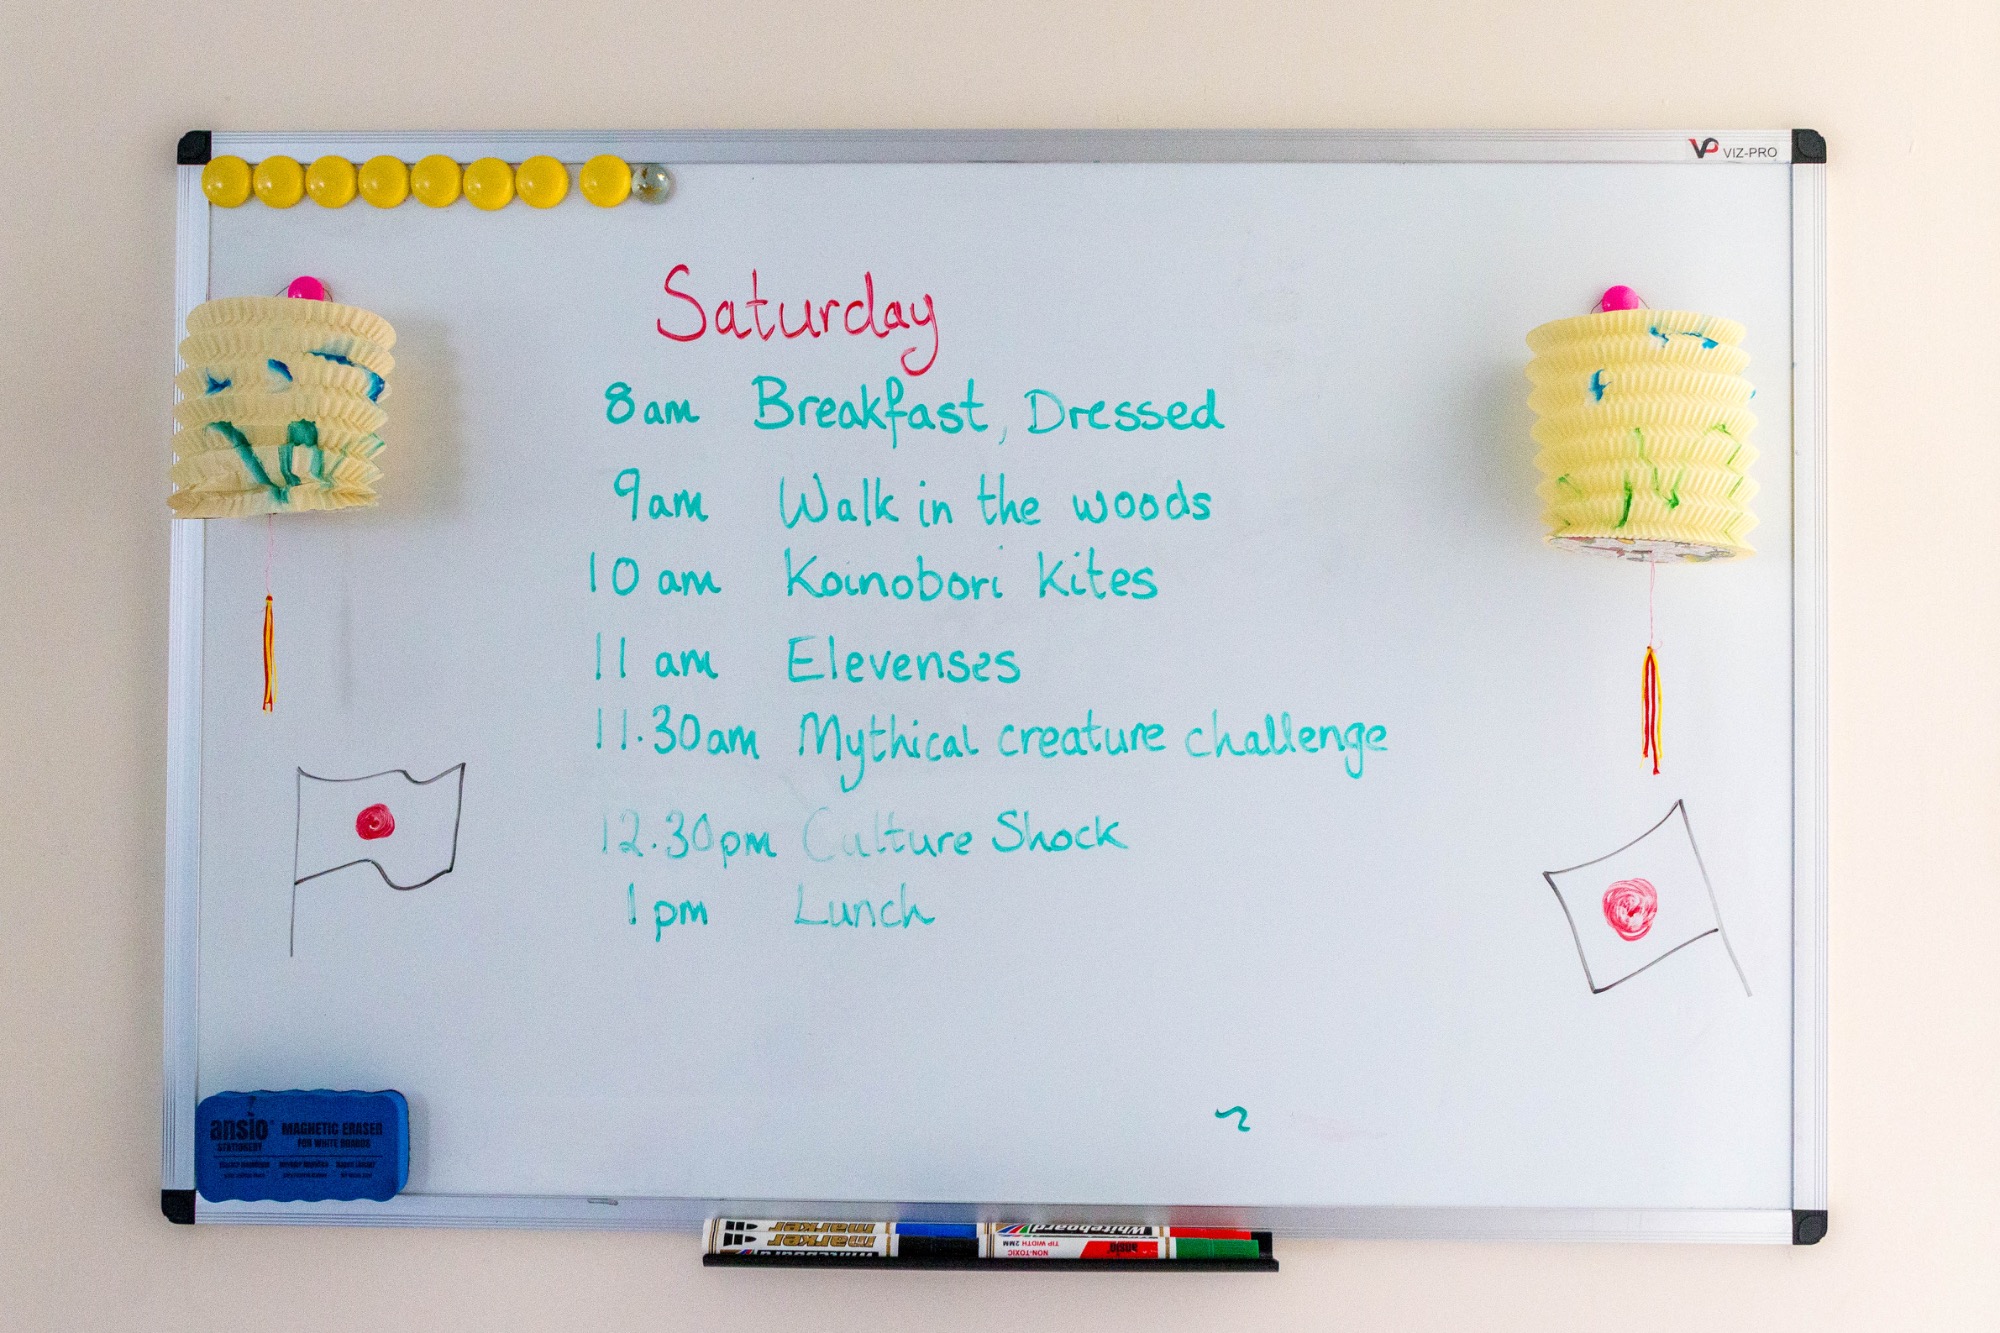 VP VIZ-PRO
Saturday
8am Breakfast, Dressed
9am Walk in the woods
10 am Koinobori Kites
11 am Elevenses
11.30am Mythical creature challenge
12.30pm Culture Shock
1pm Lunch
ansio
STATIONERY
MAGNETIC ERASER
FOR WHITE BOARDS
marker
Whiteboard
marker
Whiteboard
NON-TOXIC
TIP WIDTH 2MM
ansio